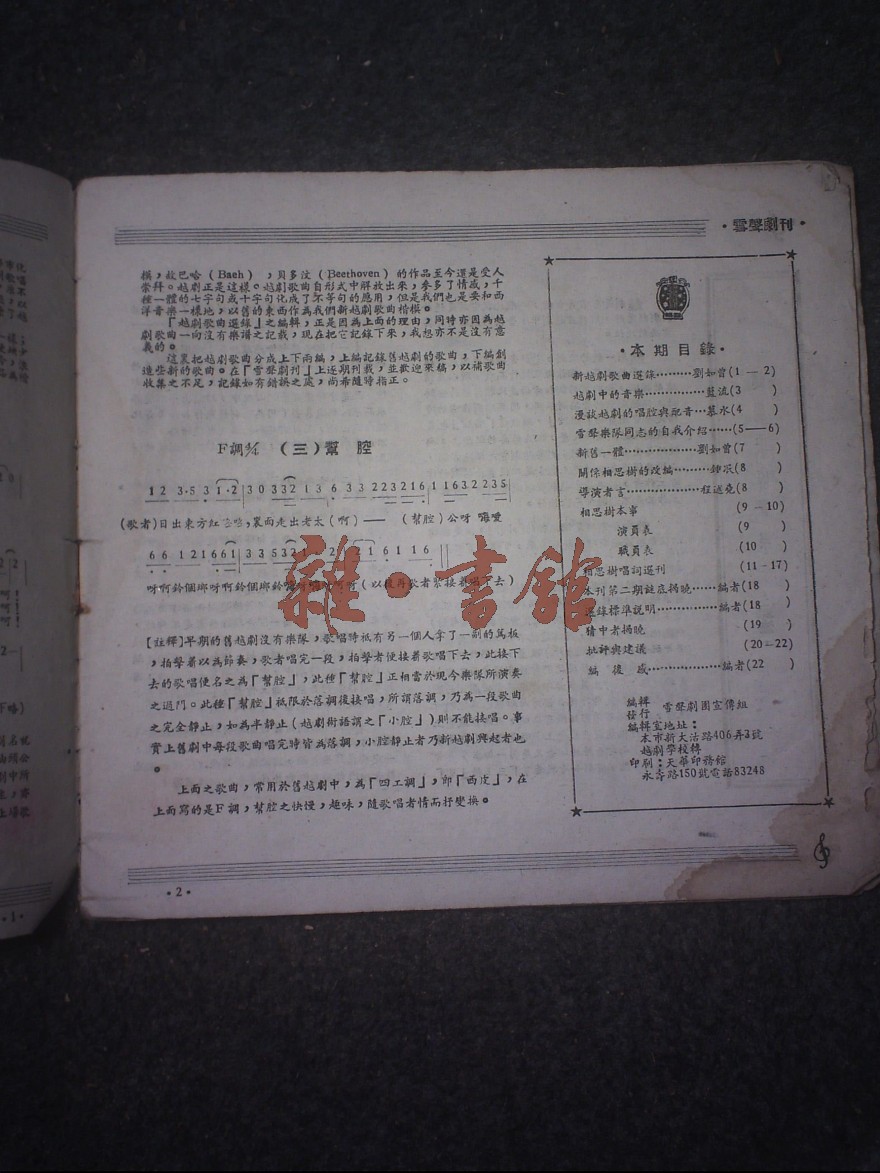 ·雪聲劇刊·
模,故巴哈(Bach),貝多汶(Beethoven)的作品至今還是受人
崇拜。越劇正是這樣。越劇歌曲自形式中解放出來,參多了情感,千
種一體的七字句或十字句化成了不等句的應用,但是我們也是要和西
洋音樂一樣地,以舊的東西作為我們新越劇歌曲楷模。
「越劇歌曲選錄」之編輯,正是因為上面的理由,同時亦因為越
劇歌曲一向沒有樂譜之記載,現在把它記錄下來,我想亦不是沒有意
義的。
這裏把越劇歌曲分成上下兩編,上編記錄舊越劇的歌曲,下編創
造些新的歌曲。在「雪聲劇刊」上逐期刊載,並歡迎來稿,以補歌曲
收集之不足,記錄如有錯誤之處,尚希隨時指正。
F調2/4 (三)幫腔
1 2 3·5 3 1·2 | 3 0 3 3 2 1 3 6 3 3 2 2 3 2 1 6 | 1 1 6 3 2 2 3 5 |
(歌者)日出東方紅 裏面走出老太(啊)—— (幫腔)公呀 嗨噯
6 6 1 2 1 6 6 1 | 3 3 5 3 2 1 2 2 1 6 1 1 6 ||
呀啊鈴個瑯呀啊鈴個瑯鈴 (以後再歌者緊接着唱下去)
[註釋]早期的舊越劇沒有樂隊,歌唱時祇有另一個人拿了一副的篤板
,拍擊着以為節奏,歌者唱完一段,拍擊者便接着歌唱下去,此接下
去的歌唱便名之為「幫腔」,此種「幫腔」正相當於現今樂隊所演奏
之過門。此種「幫腔」祇限於落調後接唱,所謂落調,乃為一段歌曲
之完全靜止,如為半靜止(越劇術語謂之「小腔」)則不能接唱。事
實上舊劇中每段歌曲唱完時皆為落調,小腔靜止者乃新越劇興起者也
。
上面之歌曲,常用於舊越劇中,為「四工調」,即「西皮」,在
上面寫的是F調,幫腔之快慢,趣味,隨歌唱者情而抒變換。
·2·
·本期目錄·
新越劇歌曲選錄………劉如曾(1—2)
越劇中的音樂………………藍流(3 )
漫談越劇的唱腔與配音…慕水(4 )
雪聲樂隊同志的自我介紹……(5——6)
新舊一體………………劉如曾(7 )
關係相思樹的改編………鍾泯(8 )
導演者言………………程述堯(8 )
相思樹本事 (9—10)
演員表 (9 )
職員表 (10 )
相思樹唱詞選刊 (11-17)
本刊第二期謎底揭曉……編者(18 )
選錄標準說明…………編者(18 )
猜中者揭曉 (19 )
批評與建議 (20—22)
編後感………………編者(22 )
編輯
發行 雪聲劇團宣傳組
編輯室地址:
本市新大沽路406弄3號
越劇學校轉
印刷:天華印務館
永壽路150號電話83248
雜·書館
·1·